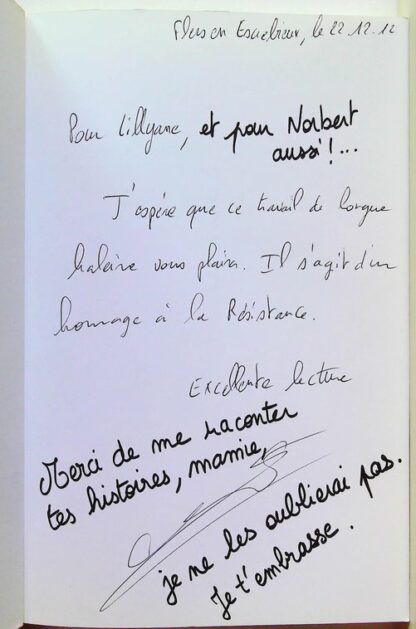 Flers en Escrebieux, le 22.12.12
Pour Lillyane, et pour Norbert
aussi !...
J'espère que ce travail de longue
haleine vous plaira. Il s'agit d'un
hommage à la Résistance.
Excellente lecture
Merci de me raconter
tes histoires, mamie,
je ne les oublierai pas.
Je t'embrasse.